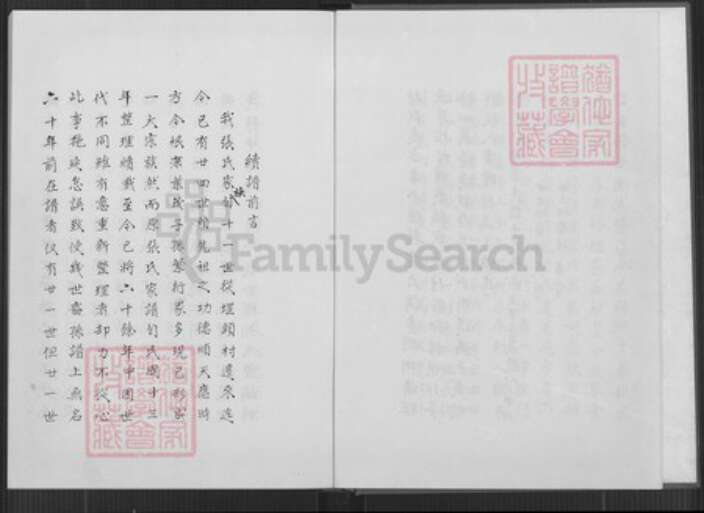 續譜前言
我張氏家族自十一世從埋頭村遷來迄
今已有廿四世賴先祖之功德順天應時
方令根深葉茂子孫繁衍眾多現已形成
一大家族然而原張氏家譜自民國十三
年整理續載至今已將六十餘年中國世
代不同雖有意重新整理者却力不從心
此事拖延怠誤致使我世裔孫譜上無名
六十年前在譜者仅有廿一世但廿一世
FamilySearch